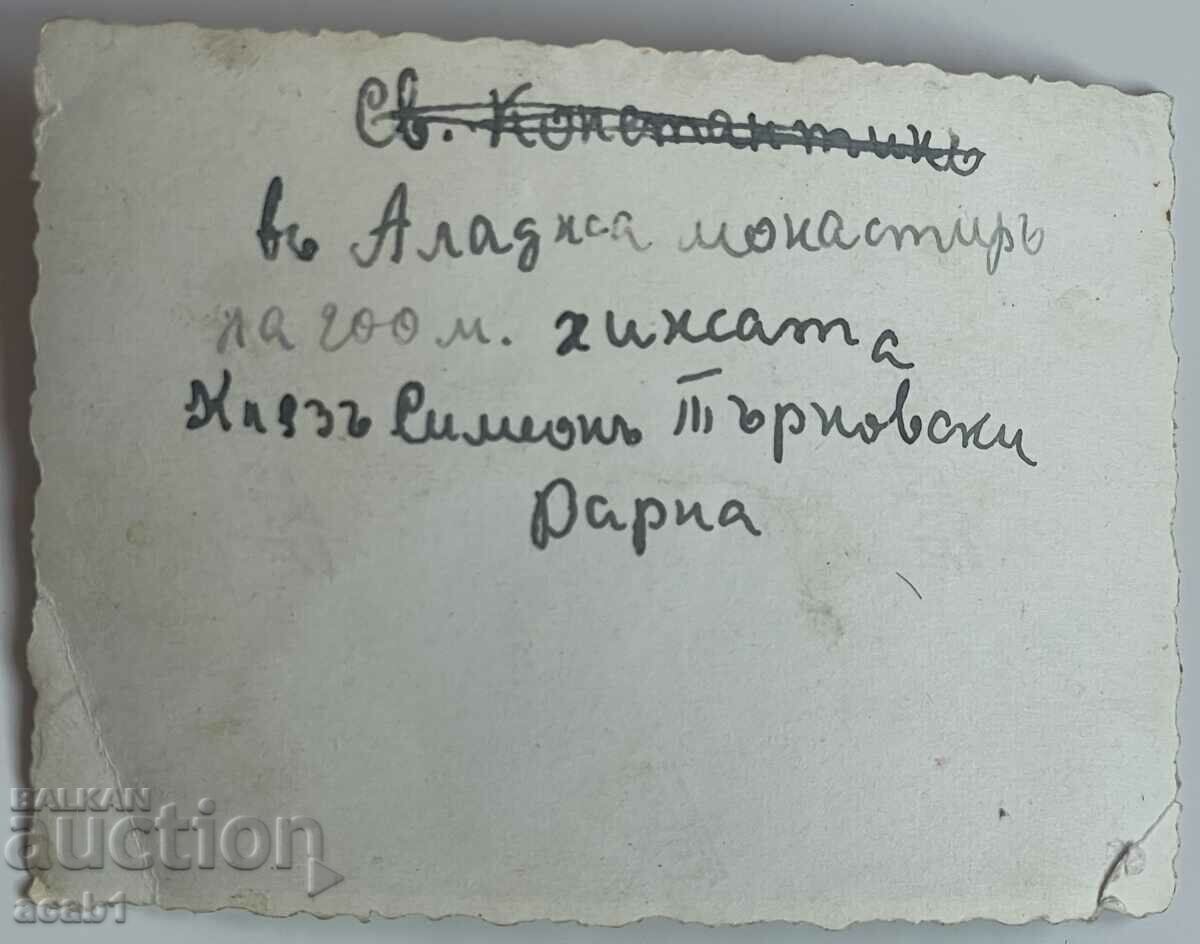 Св. Константинъ
въ Аладжа монастиръ
на 200 м. хижата
Князъ Симеонъ Търновски
Варна
BALKAN
auction
acab1